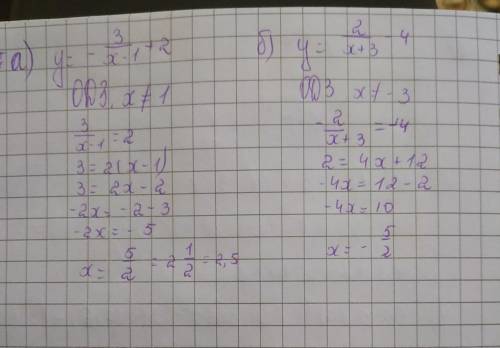 а) y = - 3/(x-1) + 2
ОДЗ. x ≠ 1
3/(x-1) = 2
3 = 2(x-1)
3 = 2x - 2
-2x = -2 - 3
-2x = - 5
x = 5/2 = 2 1/2 = 2,5
б) y = 2/(x+3) - 4
ОДЗ x ≠ - 3
- 2/(x+3) = -4
2 = 4x + 12
-4x = 12 - 2
-4x = 10
x = - 5/2